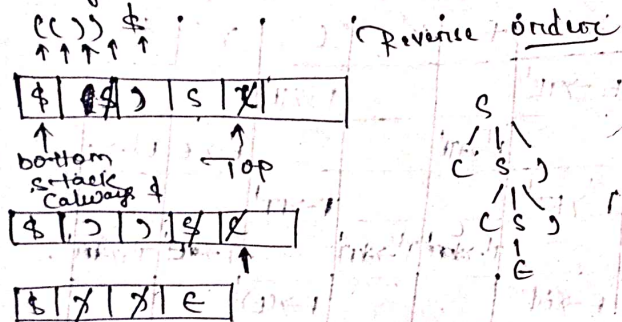 ( ( ) ) $
Reverse order
$ $ ) S (
bottom
stack
(always $
Top
$ ) ) S (
$ ) ) ε
S
( S )
( S )
ε